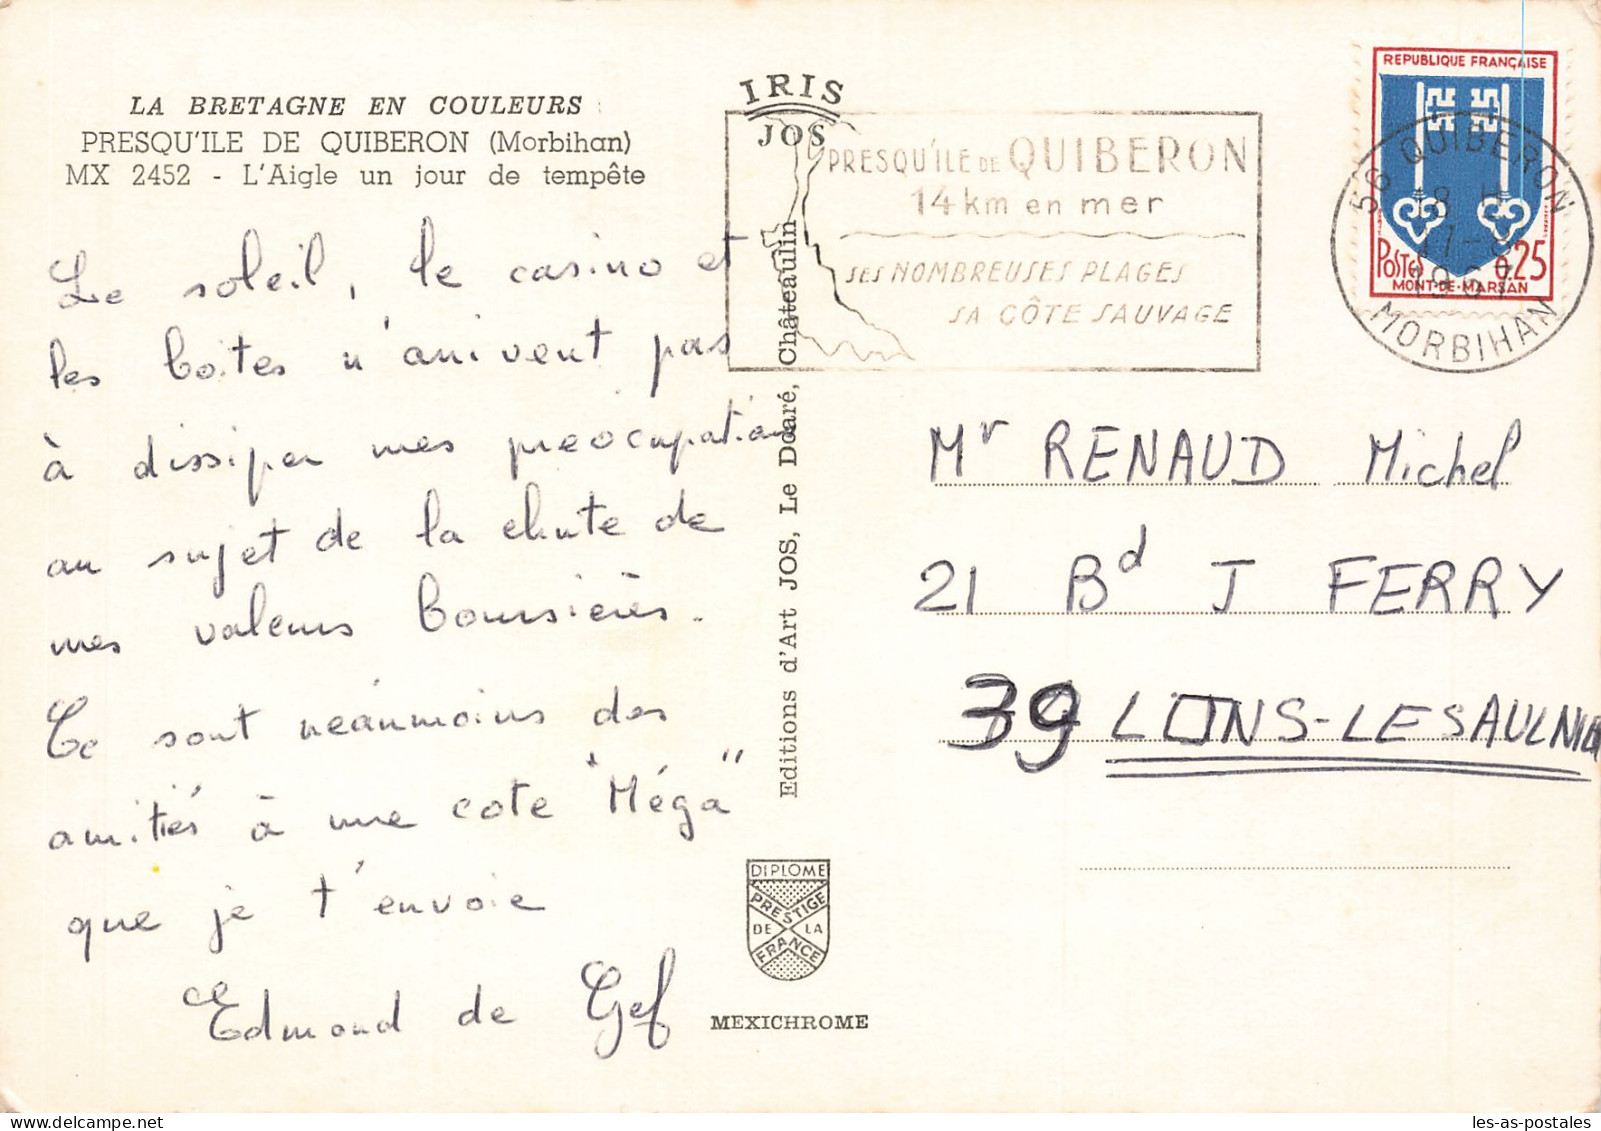 LA BRETAGNE EN COULEURS
PRESQU'ILE DE QUIBERON (Morbihan)
MX 2452 - L'Aigle un jour de tempête
Le soleil, le casino et
les boîtes n'arrivent pas
à dissiper mes préocupations
au sujet de la chute de
mes valeurs boursières.
Ce sont néanmoins des
amitiés à une cote "Méga"
que je t'envoie
Edmond de Gef
IRIS
JOS
Editions d'Art JOS, Le Doaré, Châteaulin
DIPLOME
PRESTIGE
DE LA
FRANCE
MEXICHROME
PRESQU'ILE DE QUIBERON
14 km en mer
SES NOMBREUSES PLAGES
SA CÔTE SAUVAGE
REPUBLIQUE FRANÇAISE
POSTES 0,25
MONT-DE-MARSAN
56 QUIBERON
18 H
1967
MORBIHAN
Mr RENAUD Michel
21 Bd J FERRY
39 LONS-LE SAULNIER
les-as-postales
delcampe.net